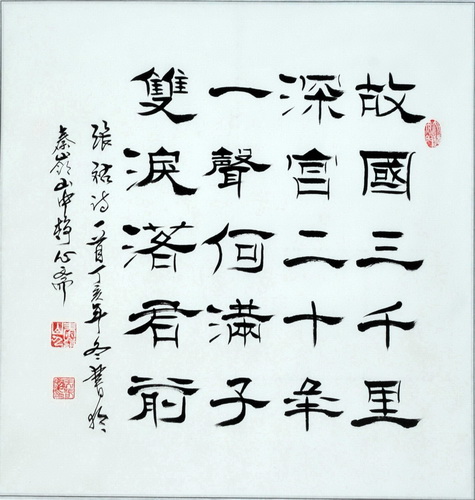 故國三千里
深宮二十年
一聲何滿子
雙淚落君前
張祜诗一首丁亥年冬書於
秦嶺山中靜心斋